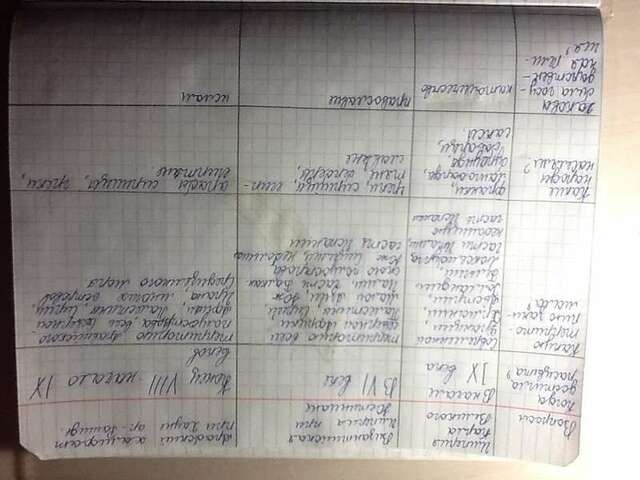 Вопросы
Империя
Карла
Великого
Византийская
Империя при
Юстиниане
Арабский халифат
при Харун ар-Рашиде
Когда
достигла
расцвета?
В начале
IX века
В VI веке
Конец VIII - начало IX
веков
Какую
террито-
рию зани-
мала?
Современной
Франции,
Германии,
Австрии,
Голландии,
Бельгии
Люксембурга,
часть Италии,
небольшую
часть Испании
территорию всей
северной Африки
Палестины, Сирии,
часть Балкан
ского полуострова
часть Испании
территорию Аравийского
полуострова, всей Северной
Африки, Палестины, Сирии,
Ирака, многих островов
Средиземного моря.
Какие
народы
населяли?
франки,
лангобарды,
баварцы,
саксы.
греки, сирийцы, егип-
тяне
славяне
арабы, сирийцы, греки,
египтяне.
Какова
была госу-
дарствен-
ная рели-
гия?
католичество
православие
ислам